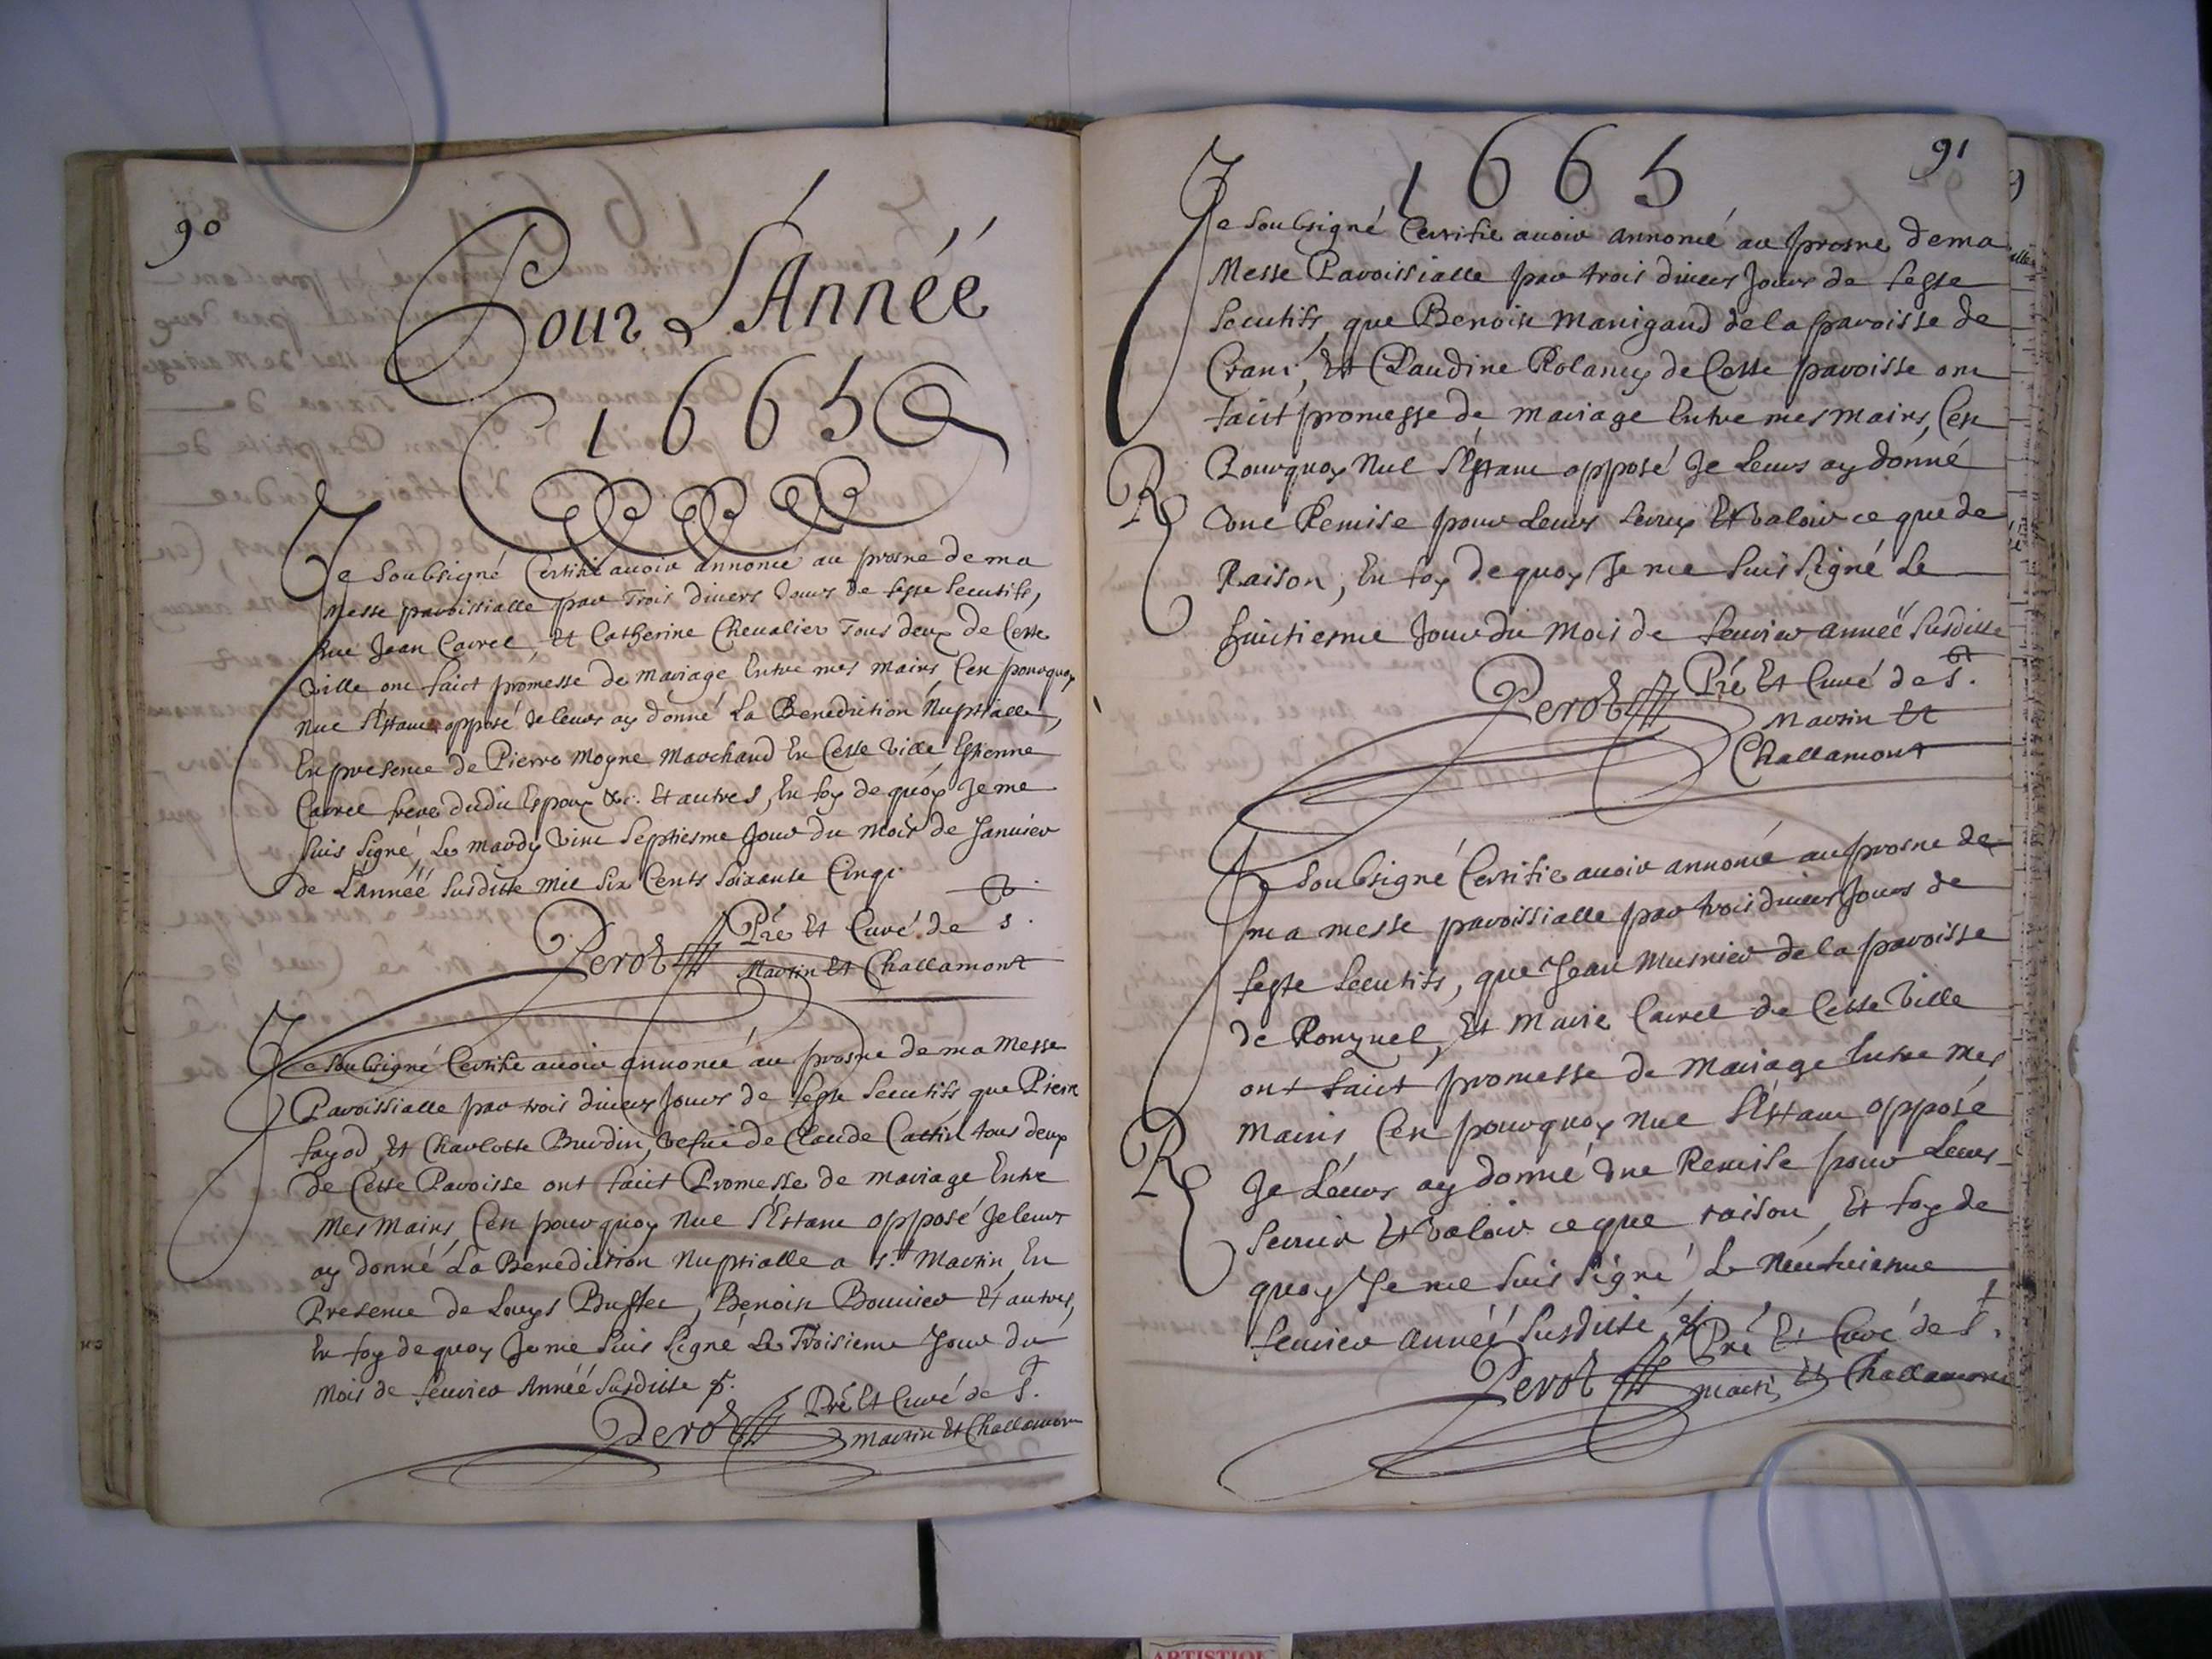 90
Pour L'Année
1665
Je Soubsigné Certifie avoir annoncé au prosne de ma
Messe parroissialle par Trois divers Jours de feste Secutifs,
que Jean Carrel, Et Catherine Chevalier Tous deux de Cette
Ville ont faict promesse de Mariage Entre mes Mains, C'en pourquoy
Nul s'Estant opposé Je leurs ay donné La Benediction Nuptialle,
En presence de Pierre Moyne Marchand En Cette Ville, Estienne
Carrel frere dudit Espoux &c. Et autres, En foy de quoy Je me
suis Signé, Le Mardy Vint Septiesme Jour du Mois de Janvier
de L'Année Susditte Mil Six Cents Soixante Cinq.
Perot Pré Et Curé de St.
Martin Et Challamont
Je Soubsigné Certifie avoir annoncé au prosne de ma Messe
Parroissialle par trois divers Jours de feste Secutifs que Pierre
fayod, Et Charlotte Burdin, Vefue de Claude Cattin tous deux
de Cette Parroisse ont faict Promesse de Mariage Entre
Mes Mains, C'en pourquoy Nul s'Estant opposé Je leurs
ay donné La Benediction Nuptialle a St. Martin, En
Presence de Louys Buffet, Benoist Bouvier Et autres,
En foy de quoy Je me suis Signé Le Troisieme Jour du
Mois de feuvier Année Susditte
Perot Pré Et Curé de St.
Martin Et Challamont
91
1665
Je Soubsigné Certifie avoir annoncé au prosne de ma
Messe Parroissialle par trois divers Jours de feste
Secutifs, que Benoist Manigaud de la parroisse de
Crans, Et Claudine Rolany de Cette parroisse ont
faict promesse de Mariage Entre mes Mains, C'en
Pourquoy Nul s'Estant opposé Je Leurs ay donné
R
une Remise pour Leurs servir Et valoir ce que de
Raison, En foy de quoy Je me suis Signé Le
huictiesme Jour du Mois de feuvier Année Susditte
Perot Pré Et Curé de St.
Martin Et
Challamont
Je Soubsigné Certifie avoir annoncé au prosne de
ma messe parroissialle par trois divers Jours de
feste Secutifs, que Jean Musnier de la parroisse
de Ronzuel, Et Marie Carrel de Cette Ville
ont faict promesse de Mariage Entre Mes
Mains C'en pourquoy Nul s'Estant opposé
R
Je Leurs ay donné Une Remise pour Leurs
Servir Et Valoir ce que raison, Et foy de
quoy Je me suis Signé, Le Neufviesme
feuvier Année Susditte
Perot Pré Et Curé de St.
Martin Et Challamont
ARTISTIQU